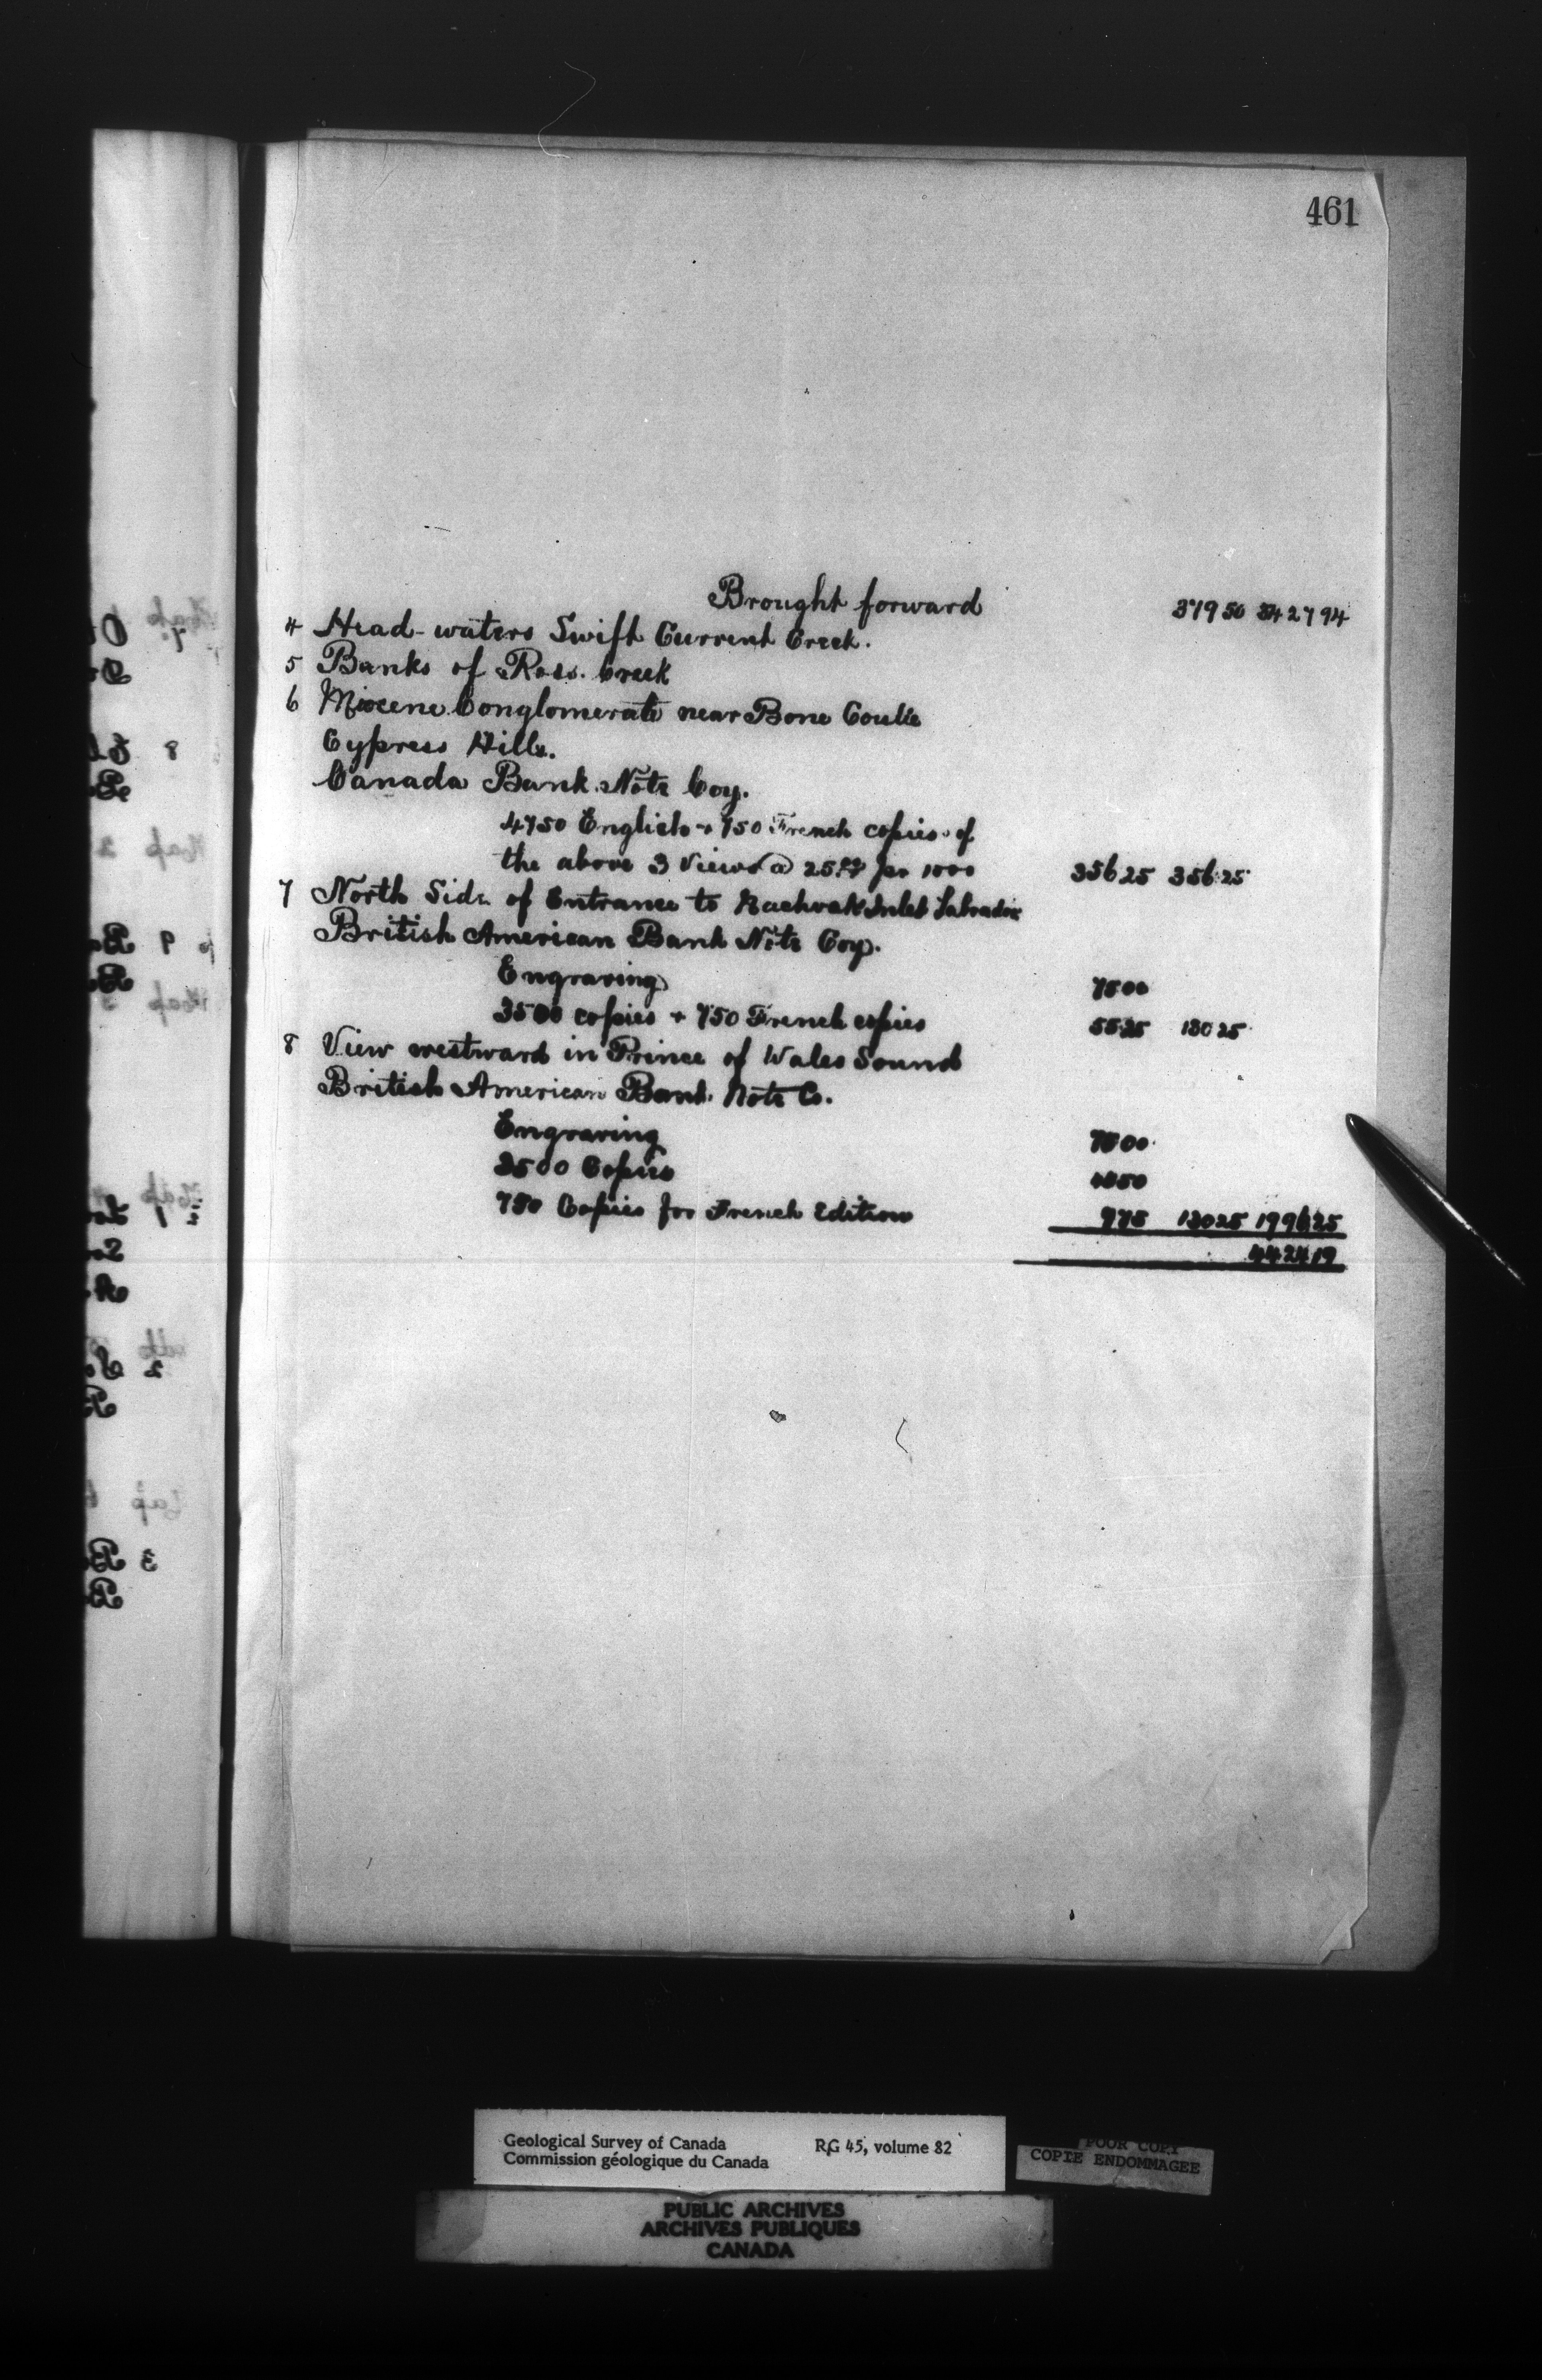 461
Brought forward 379 50 3427 94
4 Head-waters Swift Current Creek.
5 Banks of Ross Creek
6 Miocene Conglomerate near Bone Coulée
Cypress Hills.
Canada Bank Note Coy.
4750 English + 750 French copies of
the above 3 Views @ 25.00 per 1000 356 25 356 25
7 North Side of Entrance to Nachvak Inlet Labrador
British American Bank Note Coy.
Engraving 75 00
3500 copies + 750 French copies 55 25 130 25
8 View westward in Prince of Wales Sound
British American Bank Note Co.
Engraving 75 00
3500 Copies 45 50
750 Copies for French Edition 9 75 130 25 996 25
4424 19
Geological Survey of Canada RG 45, volume 82
Commission géologique du Canada
POOR COPY
COPIE ENDOMMAGEE
PUBLIC ARCHIVES
ARCHIVES PUBLIQUES
CANADA